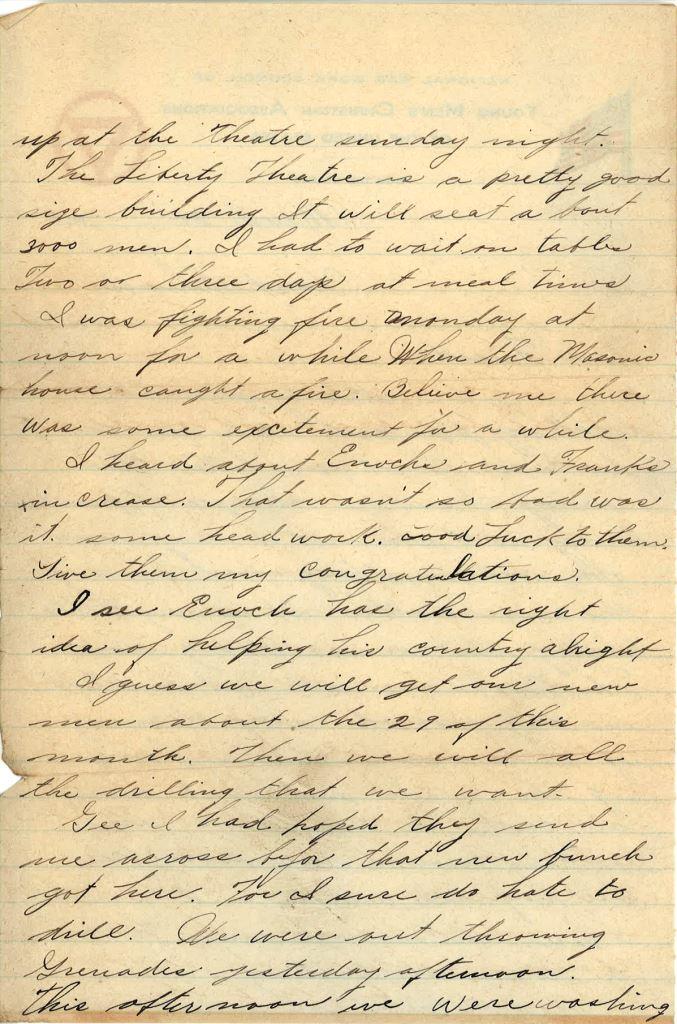 up at the Theatre sunday night.
The Liberty Theatre is a pretty good
size building It will seat a bout
3000 men. I had to wait on tables
Two or three days at meal times
I was fighting fire monday at
noon for a while When the Masonic
house caught a fire. Believe me there
was some excitement for a while.
I heard about Enochs and Franks
increase. That wasn't so bad was
it. some head work. Good Luck to them.
Give them my congratulations.
I see Enoch has the right
idea of helping his country alright
I guess we will get our new
men about the 29 of this
month. Then we will all
the drilling that we want.
Gee I had hoped they send
me across befor that new bunch
got here. For I sure do hate to
drill. We were out throwing
Grenades yesterday afternoon.
This after noon we were washing
NATIONAL WAR WORK COUNCIL OF
YOUNG MEN'S CHRISTIAN ASSOCIATIONS